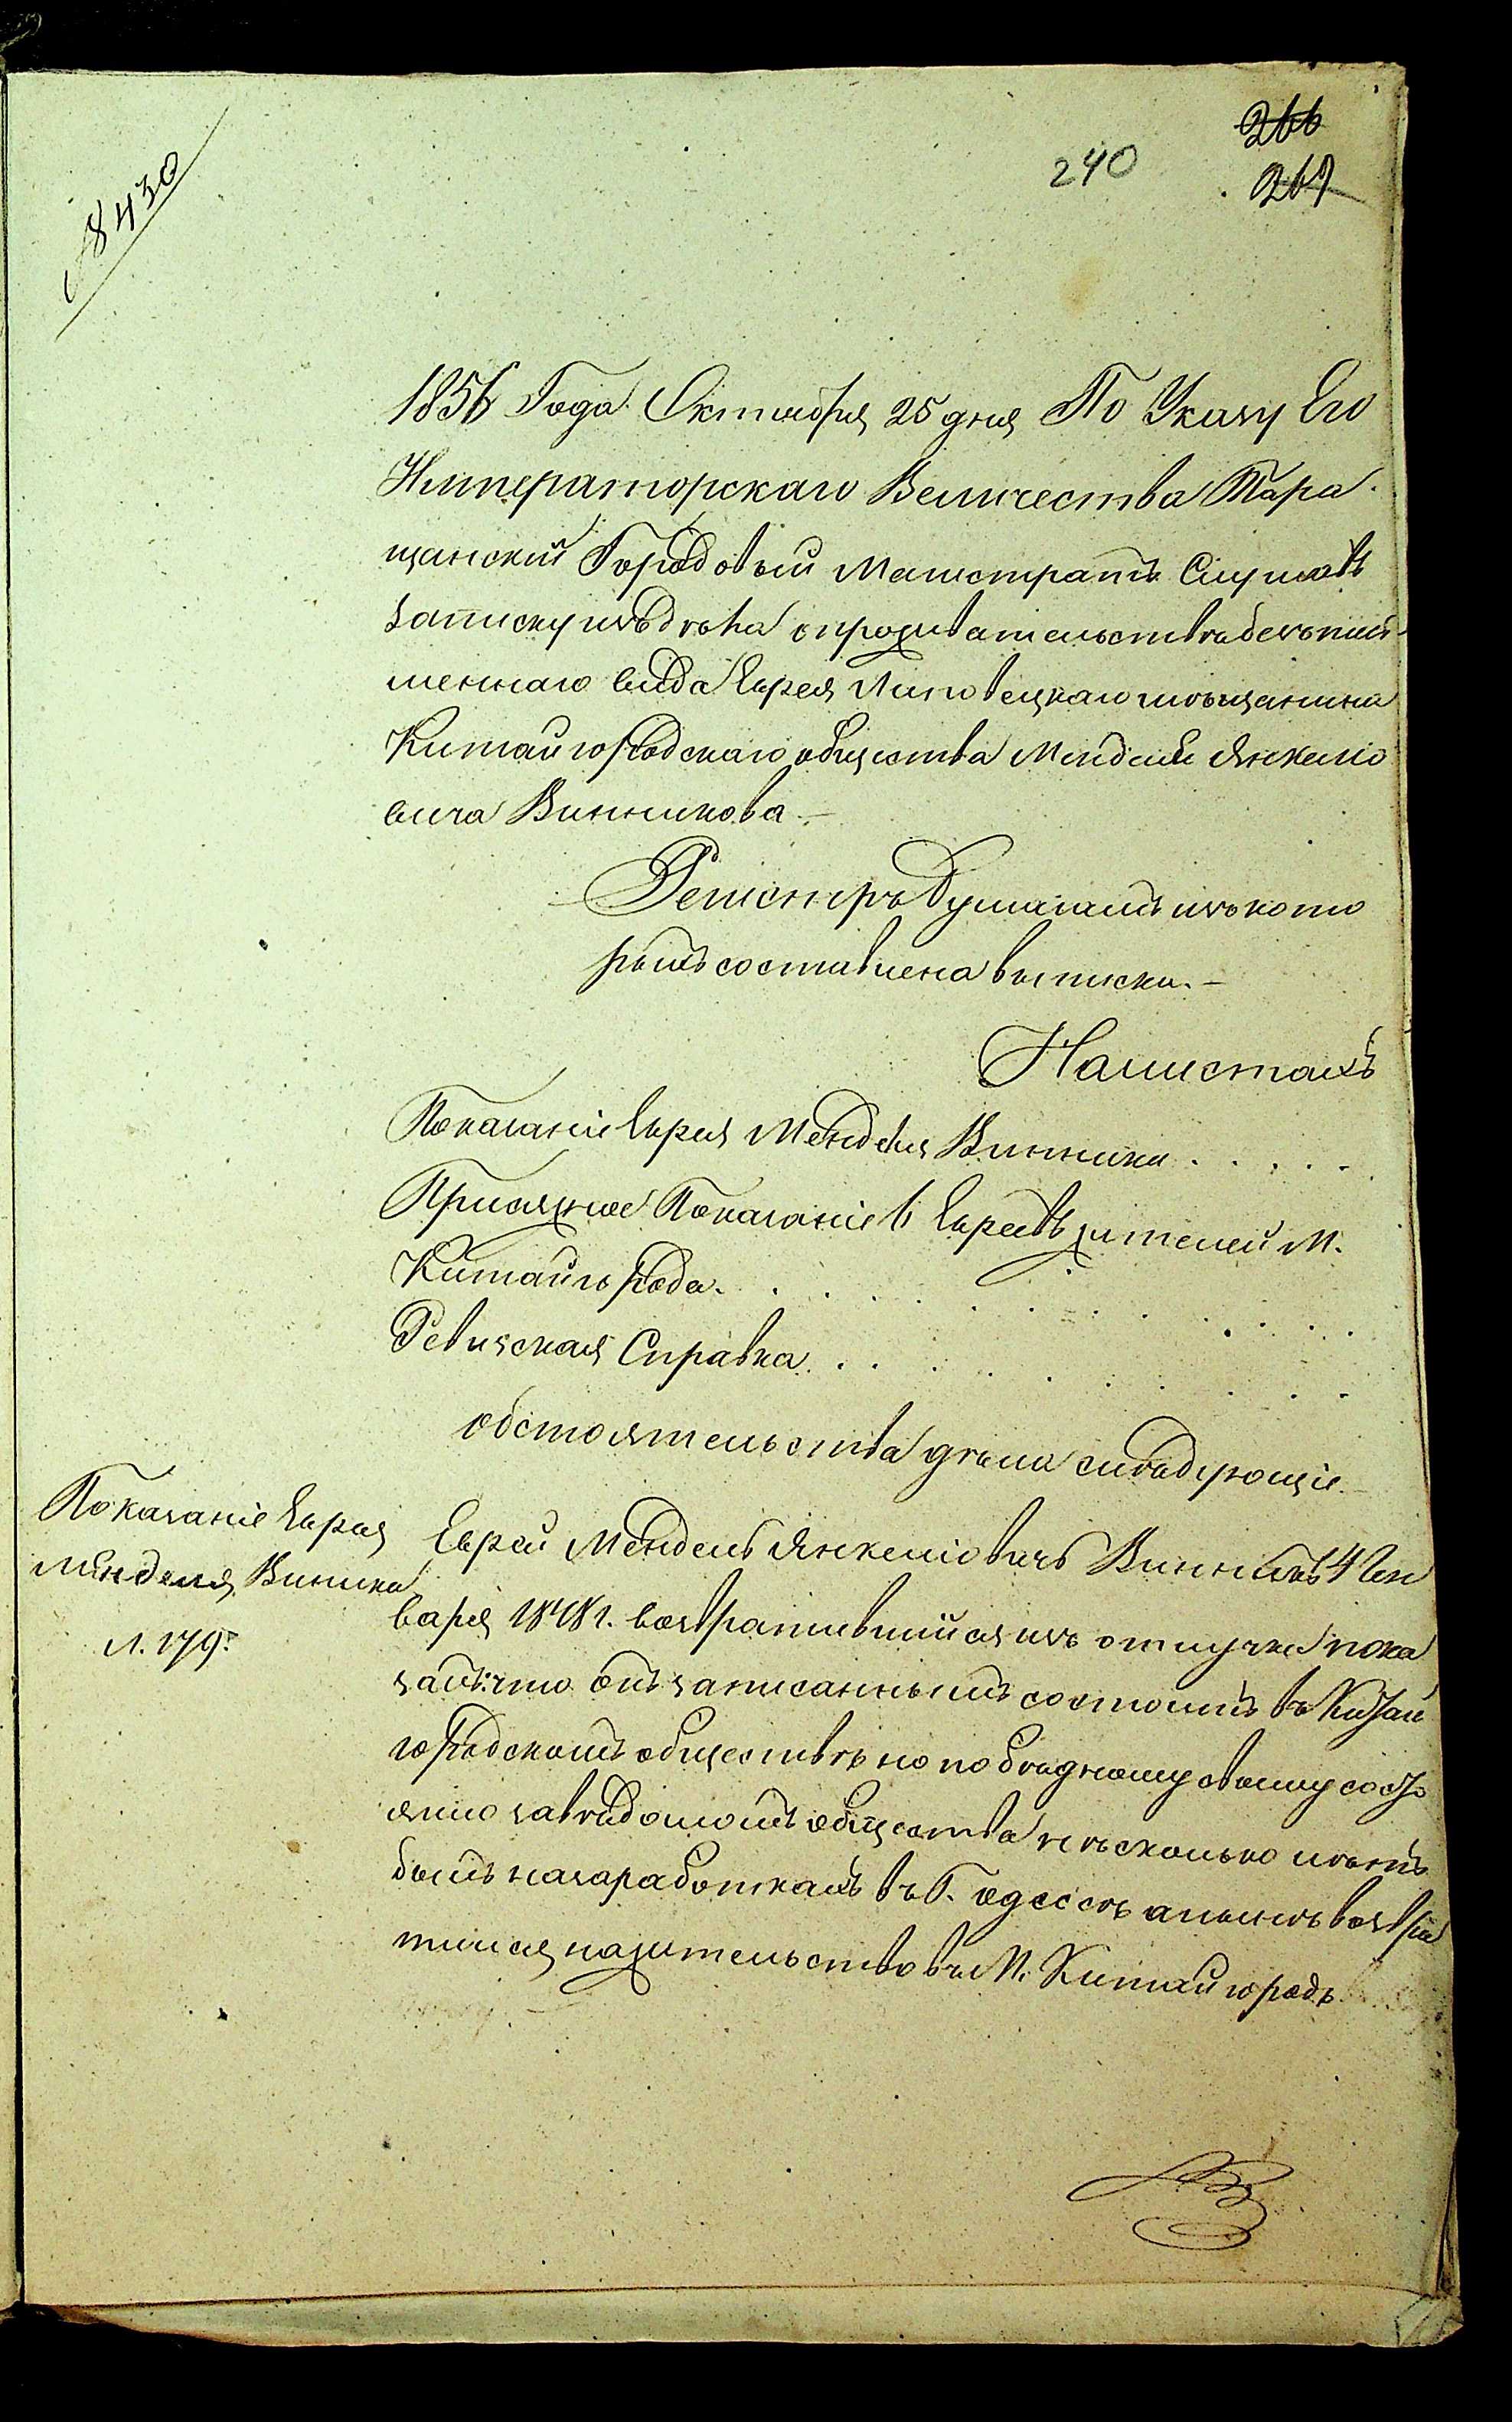 266
240 267
№ 8430
1856 Года Октября 25 дня По Указу Его
Императорскаго Величества Тара-
щанский Городовый Магистратъ Слушавъ
записку изъ дѣла о проживательствѣ безъ пись-
меннаго вида Еврея Липовецкаго мѣщанина
Китайгородскаго общества Менделя Янкеліо
вича Винникова.—
Регистръ бумагамъ изъ кото
рыхъ составлена выписка.—
На листахъ
Показаніе Еврея Менделя Винника . . . . .
Присяжное Показаніе 6 Евреевъ жителей М.
Китайгорода. . . . . . . . . . . .
Ревизская Справка . . . . . . . . .
обстоятельства дѣла слѣдующіе.—
Показаніе Еврея
Менделя Виника
л. 179.
Еврей Мендель Янкеліовичъ Винникъ 4 Ген
варя 1848 г. возвратившийся изъ отлучки пока
залъ: что онъ записаннымъ состоитъ въ Китай
городскомъ обществѣ но по бѣдному своему состо
янію завѣдомомъ общества нѣсколько лѣтъ
былъ на заработкахъ въ Г. Одессѣ а нынѣ возвра
тился на жительство въ М. Китайгородъ